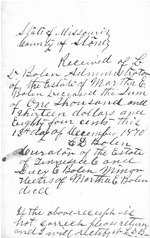 State of Missouri
County of Stone
Received of L
D Bolin Administrator
of the Estate of Martha E
Bolin Deceased the Sum
of One thousand and
thirteen dollars and
Eighty four cents this
13th day of December 1870
C D Bolin
Curator of the Estate
of E and
Lucy E Bolin Minor
Heirs of Martha E Bolin
decd
If the above receipt is
not correct please return
and I will rectify it